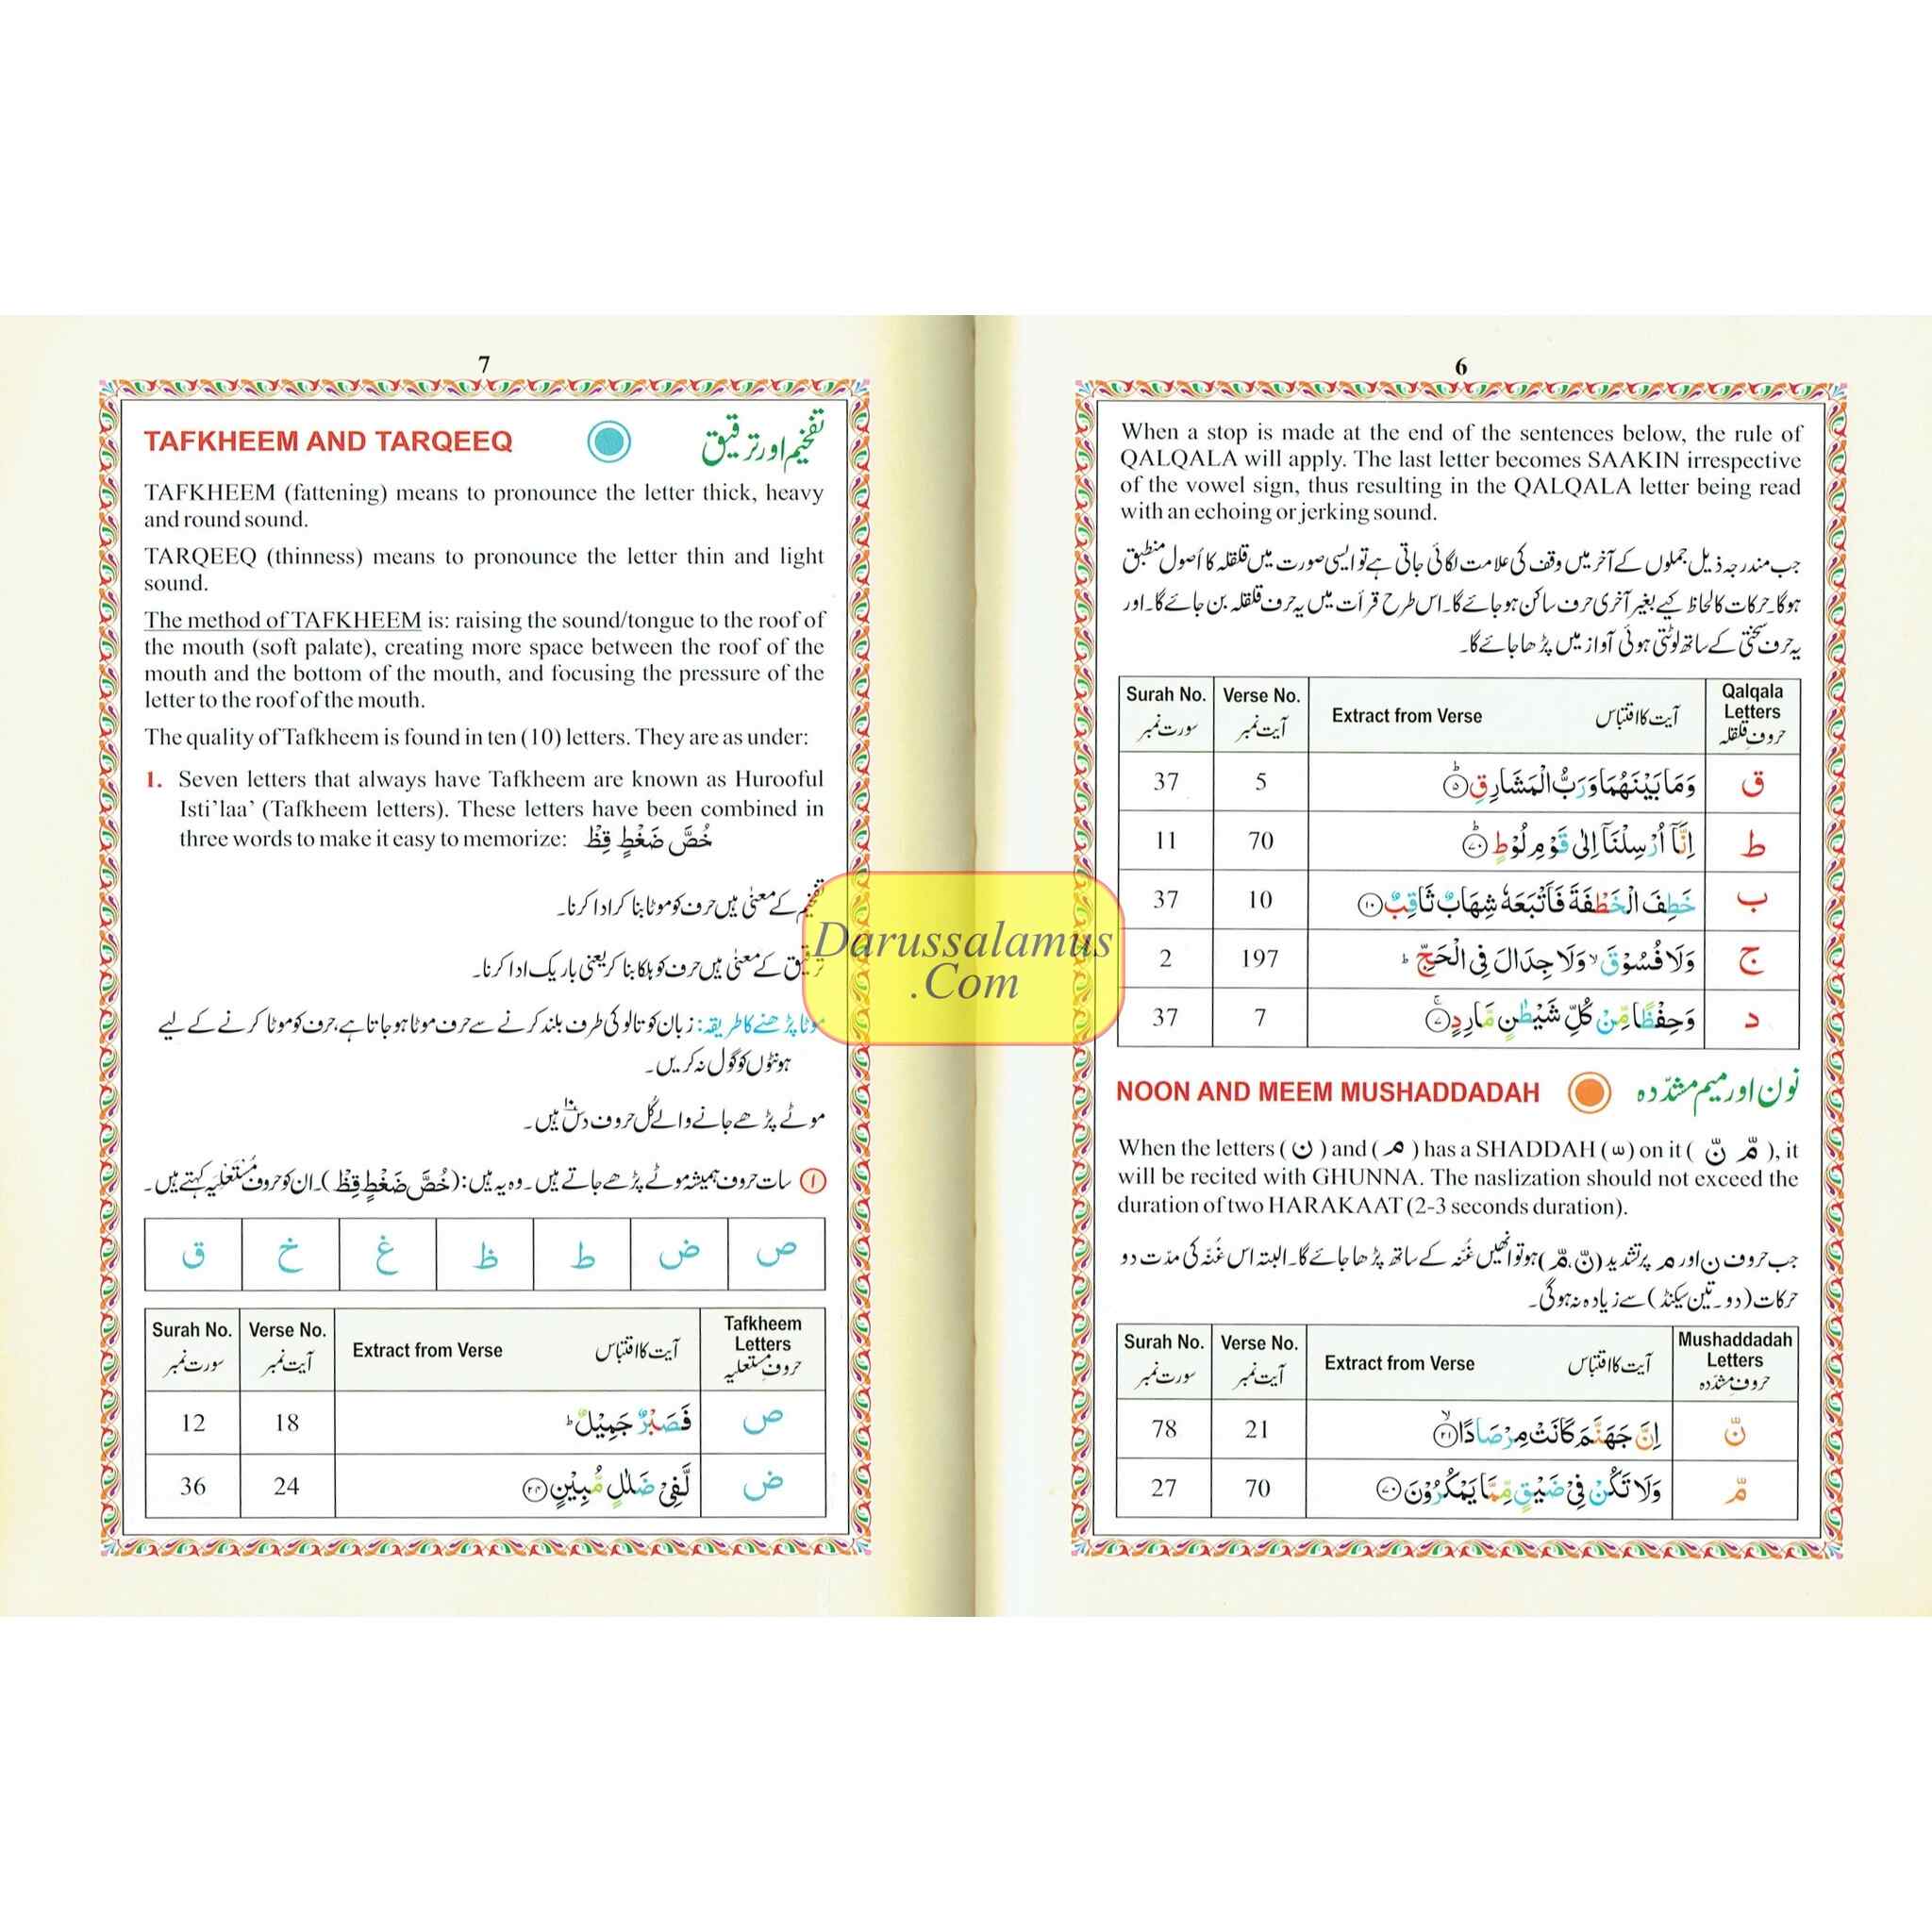 6
When a stop is made at the end of the sentences below, the rule of
QALQALA will apply. The last letter becomes SAAKIN irrespective
of the vowel sign, thus resulting in the QALQALA letter being read
with an echoing or jerking sound.
جب مندرجہ ذیل جملوں کے آخر میں وقف کی علامت لگائی جاتی ہے تو ایسی صورت میں قلقلہ کا اُصول منطبق
ہوگا۔ حرکات کا لحاظ کیے بغیر آخری حرف ساکن ہو جائے گا۔ اس طرح قرأت میں یہ حرف قلقلہ بن جائے گا۔ اور
یہ حرف سختی کے ساتھ لوٹتی ہوئی آواز میں پڑھا جائے گا۔
Surah No. سورت نمبر Verse No. آیت نمبر Extract from Verse آیت کا اقتباس Qalqala Letters حروفِ قلقلہ
37 5 وَمَا بَيْنَهُمَا وَرَبُّ الْمَشَارِقِ ۵ ق
11 70 اِنَّآ اُرْسِلْنَآ اِلٰى قَوْمِ لُوْطٍ ۷۰ ط
37 10 خَطِفَ الْخَطْفَةَ فَاَتْبَعَهٗ شِهَابٌ ثَاقِبٌ ۱۰ ب
2 197 وَلَا فُسُوْقَ ۙ وَلَا جِدَالَ فِى الْحَجِّ ؕ ج
37 7 وَحِفْظًا مِّنْ كُلِّ شَيْطٰنٍ مَّارِدٍ ۷ د
NOON AND MEEM MUSHADDADAH نون اور میم مشدّدہ
When the letters ( ن ) and ( م ) has a SHADDAH ( ّ ) on it ( نّ مّ ), it
will be recited with GHUNNA. The naslization should not exceed the
duration of two HARAKAAT (2-3 seconds duration).
جب حروف ن اور م پر تشدید (نّ، مّ) ہو تو انھیں غُنّہ کے ساتھ پڑھا جائے گا۔ البتہ اس غُنّہ کی مدّت دو
حرکات (دو۔تین سیکنڈ) سے زیادہ نہ ہوگی۔
Surah No. سورت نمبر Verse No. آیت نمبر Extract from Verse آیت کا اقتباس Mushaddadah Letters حروفِ مشدّدہ
78 21 اِنَّ جَهَنَّمَ كَانَتْ مِرْصَادًا ۲۱ نّ
27 70 وَلَا تَكُنْ فِىْ ضَيْقٍ مِّمَّا يَمْكُرُوْنَ ۷۰ مّ
7
TAFKHEEM AND TARQEEQ تفخیم اور ترقیق
TAFKHEEM (fattening) means to pronounce the letter thick, heavy
and round sound.
TARQEEQ (thinness) means to pronounce the letter thin and light
sound.
The method of TAFKHEEM is: raising the sound/tongue to the roof of
the mouth (soft palate), creating more space between the roof of the
mouth and the bottom of the mouth, and focusing the pressure of the
letter to the roof of the mouth.
The quality of Tafkheem is found in ten (10) letters. They are as under:
1. Seven letters that always have Tafkheem are known as Hurooful
Isti'laa' (Tafkheem letters). These letters have been combined in
three words to make it easy to memorize: خُصَّ ضَغْطٍ قِظْ
تفخیم کے معنٰی ہیں حرف کو موٹا بنا کر ادا کرنا۔
ترقیق کے معنٰی ہیں حرف کو ہلکا بنا کر یعنی باریک ادا کرنا۔
موٹا پڑھنے کا طریقہ: زبان کو تالو کی طرف بلند کرنے سے حرف موٹا ہو جاتا ہے، حرف کو موٹا کرنے کے لیے
ہونٹوں کو گول نہ کریں۔
موٹے پڑھے جانے والے کُل حروف دس ہیں۔
۱ سات حروف ہمیشہ موٹے پڑھے جاتے ہیں۔ وہ یہ ہیں: (خُصَّ ضَغْطٍ قِظْ)۔ ان کو حروفِ مُسْتَعْلِیَہ کہتے ہیں۔
ص ض ط ظ غ خ ق
Surah No. سورت نمبر Verse No. آیت نمبر Extract from Verse آیت کا اقتباس Tafkheem Letters حروفِ مستعلیہ
12 18 فَصَبْرٌ جَمِيْلٌ ؕ ص
36 24 لَّفِىْ ضَلٰلٍ مُّبِيْنٍ ۲۴ ض
Darussalamus
.Com